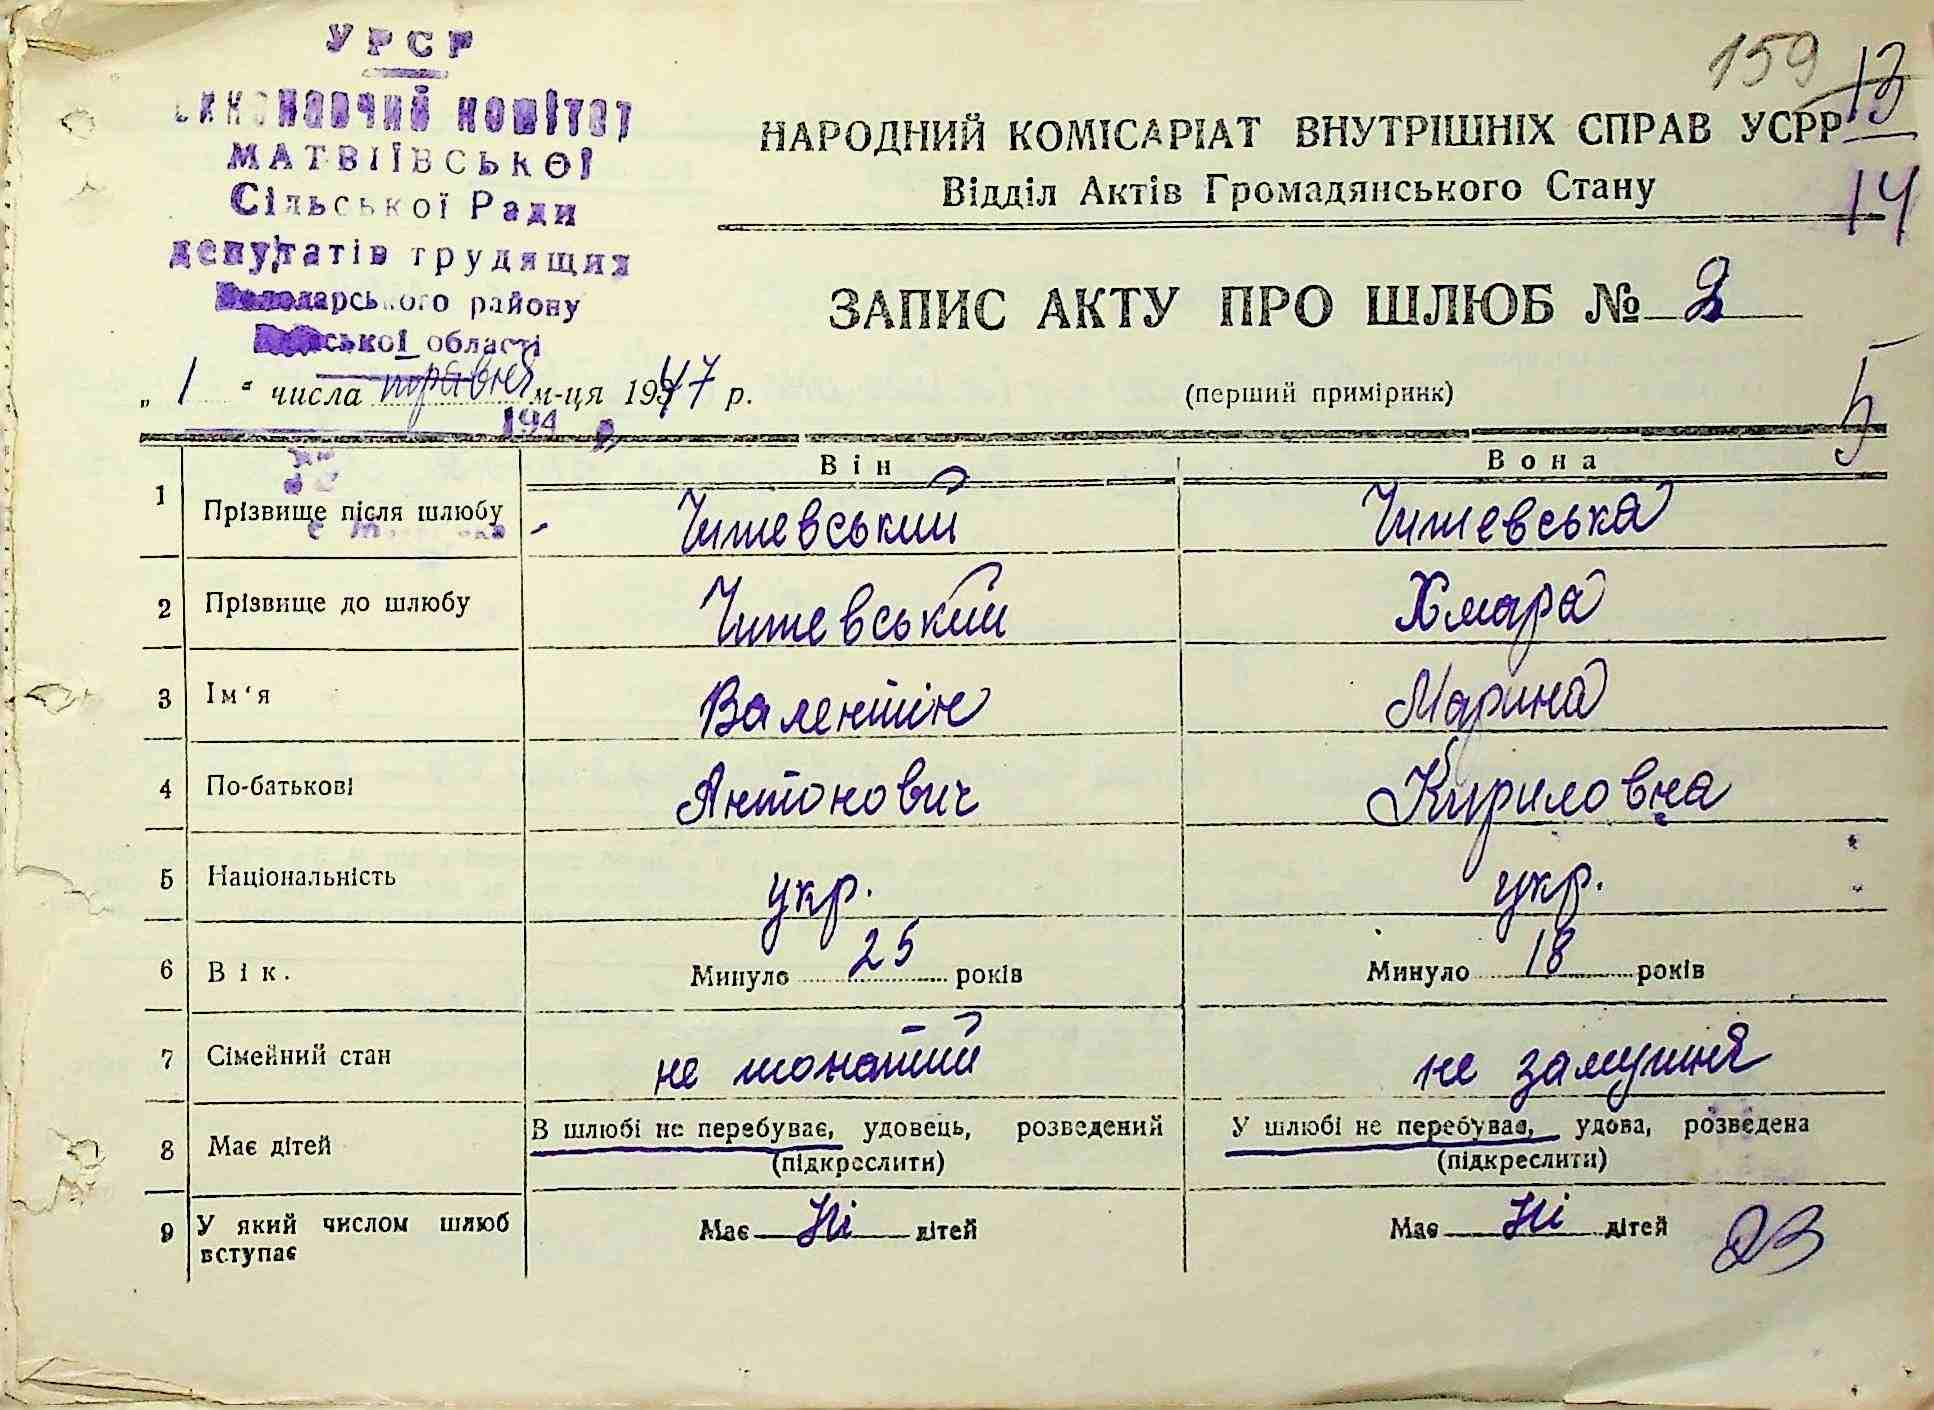 УРСР
ВИКОНАВЧИЙ КОМІТЕТ
МАТВІЇВСЬКОЇ
Сільської Ради
депутатів трудящих
Володарського району
ської області
159
13
14
НАРОДНИЙ КОМІСАРІАТ ВНУТРІШНІХ СПРАВ УСРР
Відділ Актів Громадянського Стану
ЗАПИС АКТУ ПРО ШЛЮБ № 2
„ 1 “ числа травня м-ця 1947 р.
(перший примірник)
5
194 р.
Він Вона
1 Прізвище після шлюбу Чижевський Чижевська
2 Прізвище до шлюбу Чижевський Хмара
3 Ім'я Валентін Марина
4 По-батькові Антонович Кириловна
5 Національність укр. укр.
6 Вік. Минуло 25 років Минуло 18 років
7 Сімейний стан не жонатий не замужня
8 Має дітей В шлюбі не перебуває, удовець, розведений У шлюбі не перебуває, удова, розведена
(підкреслити) (підкреслити)
9 У який числом шлюб Має Ні дітей Має Ні дітей
вступає
23